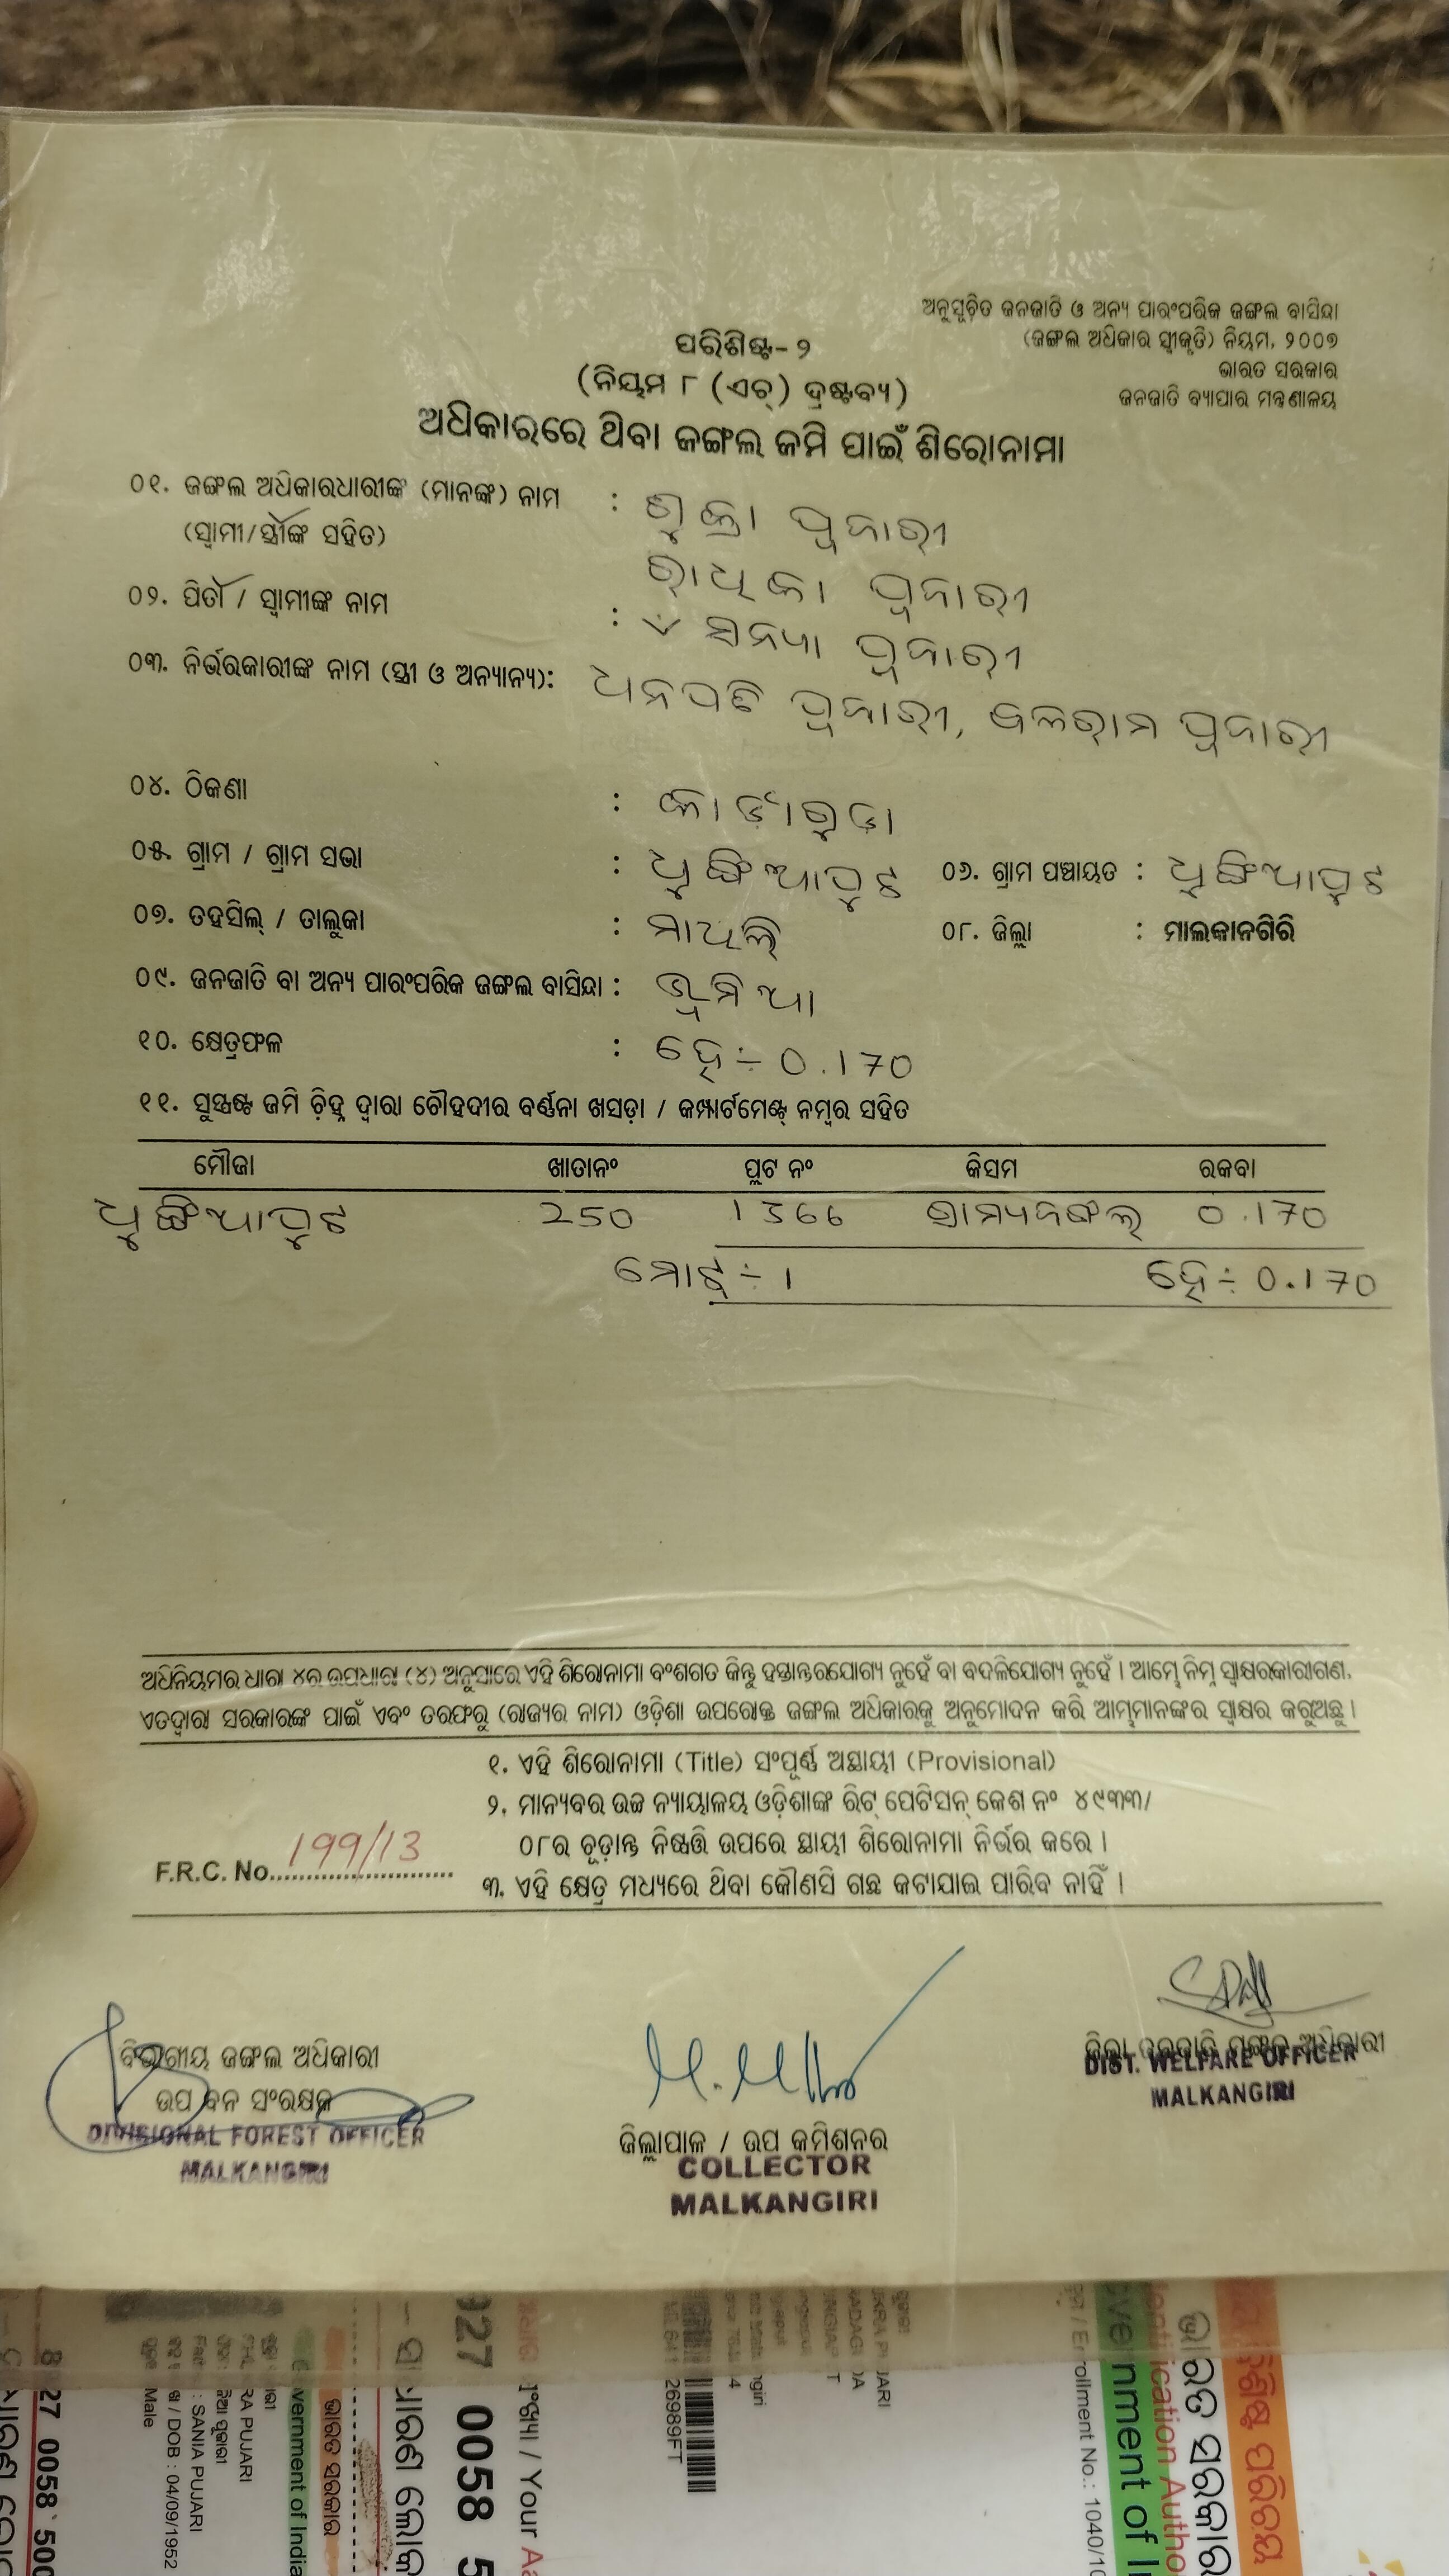 ଅନୁସୂଚିତ ଜନଜାତି ଓ ଅନ୍ୟ ପାରଂପରିକ ଜଙ୍ଗଲ ବାସିନ୍ଦା
(ଜଙ୍ଗଲ ଅଧିକାର ସ୍ୱୀକୃତି) ନିୟମ, ୨୦୦୭
ଭାରତ ସରକାର
ଜନଜାତି ବ୍ୟାପାର ମନ୍ତ୍ରଣାଳୟ
ପରିଶିଷ୍ଟ-୨
(ନିୟମ ୮ (ଏଚ୍) ଦ୍ରଷ୍ଟବ୍ୟ)
ଅଧିକାରରେ ଥିବା ଜଙ୍ଗଲ ଜମି ପାଇଁ ଶିରୋନାମା
୦୧. ଜଙ୍ଗଲ ଅଧିକାରଧାରୀଙ୍କ (ମାନଙ୍କ) ନାମ : ଶୁକ୍ରା ପୂଜାରୀ
(ସ୍ୱାମୀ/ସ୍ତ୍ରୀଙ୍କ ସହିତ) ରାଧିକା ପୂଜାରୀ
୦୨. ପିତା / ସ୍ୱାମୀଙ୍କ ନାମ : ସନ୍ୟା ପୂଜାରୀ
୦୩. ନିର୍ଭରକାରୀଙ୍କ ନାମ (ସ୍ତ୍ରୀ ଓ ଅନ୍ୟାନ୍ୟ): ଧନପତି ପୂଜାରୀ, ବଳରାମ ପୂଜାରୀ
୦୪. ଠିକଣା :
୦୫. ଗ୍ରାମ / ଗ୍ରାମ ସଭା : ଧୁଙ୍ଗିଆପୁଟ ୦୬. ଗ୍ରାମ ପଞ୍ଚାୟତ : ଧୁଙ୍ଗିଆପୁଟ
୦୭. ତହସିଲ୍ / ତାଲୁକା : ମାଥିଲି ୦୮. ଜିଲ୍ଲା : ମାଲକାନଗିରି
୦୯. ଜନଜାତି ବା ଅନ୍ୟ ପାରଂପରିକ ଜଙ୍ଗଲ ବାସିନ୍ଦା : ଭୂମିଆ
୧୦. କ୍ଷେତ୍ରଫଳ : ହେ ÷ 0.170
୧୧. ସୁସ୍ପଷ୍ଟ ଜମି ଚିହ୍ନ ଦ୍ୱାରା ଚୌହଦୀର ବର୍ଣ୍ଣନା ଖସଡ଼ା / କମ୍ପାର୍ଟମେଣ୍ଟ୍ ନମ୍ବର ସହିତ
ମୌଜା ଖାତାନଂ ପ୍ଲଟ ନଂ କିସମ ରକବା
ଧୁଙ୍ଗିଆପୁଟ 250 1366 ଗ୍ରାମ୍ୟଜଙ୍ଗଲ 0.170
ମୋଟ୍ ÷ 1 ହେ ÷ 0.170
ଅଧିନିୟମର ଧାରା ୪ର ଉପଧାରା (୪) ଅନୁସାରେ ଏହି ଶିରୋନାମା ବଂଶଗତ କିନ୍ତୁ ହସ୍ତାନ୍ତରଯୋଗ୍ୟ ନୁହେଁ ବା ବଦଳିଯୋଗ୍ୟ ନୁହେଁ । ଆମ୍ଭେ ନିମ୍ନ ସ୍ୱାକ୍ଷରକାରୀଗଣ,
ଏତଦ୍ୱାରା ସରକାରଙ୍କ ପାଇଁ ଏବଂ ତରଫରୁ (ରାଜ୍ୟର ନାମ) ଓଡ଼ିଶା ଉପରୋକ୍ତ ଜଙ୍ଗଲ ଅଧିକାରକୁ ଅନୁମୋଦନ କରି ଆମ୍ଭମାନଙ୍କର ସ୍ୱାକ୍ଷର କରୁଅଛୁ ।
୧. ଏହି ଶିରୋନାମା (Title) ସଂପୂର୍ଣ୍ଣ ଅସ୍ଥାୟୀ (Provisional)
୨. ମାନ୍ୟବର ଉଚ୍ଚ ନ୍ୟାୟାଳୟ ଓଡ଼ିଶାଙ୍କ ରିଟ୍ ପେଟିସନ୍ କେଶ ନଂ ୪୯୩୩/
୦୮ର ଚୂଡ଼ାନ୍ତ ନିଷ୍ପତ୍ତି ଉପରେ ସ୍ଥାୟୀ ଶିରୋନାମା ନିର୍ଭର କରେ ।
F.R.C. No. 199/13
୩. ଏହି କ୍ଷେତ୍ର ମଧ୍ୟରେ ଥିବା କୌଣସି ଗଛ କଟାଯାଇ ପାରିବ ନାହିଁ ।
ବିଭାଗୀୟ ଜଙ୍ଗଲ ଅଧିକାରୀ
ଉପ ବନ ସଂରକ୍ଷକ
DIVISIONAL FOREST OFFICER
MALKANGIRI
ଜିଲ୍ଲାପାଳ / ଉପ କମିଶନର
COLLECTOR
MALKANGIRI
ଜିଲ୍ଲା ଜନଜାତି ମଙ୍ଗଳ ଅଧିକାରୀ
DIST. WELFARE OFFICER
MALKANGIRI
0058 500
Male
/ DOB : 04/09/1952
: SANIA PUJARI
RA PUJARI
vernment of India
ଭାରତ ସରକାର
927 0058 5
/ Your Aa
26989FT
Enrollment No.: 1040/10
vernment of I
ଭାରତ ସରକାର